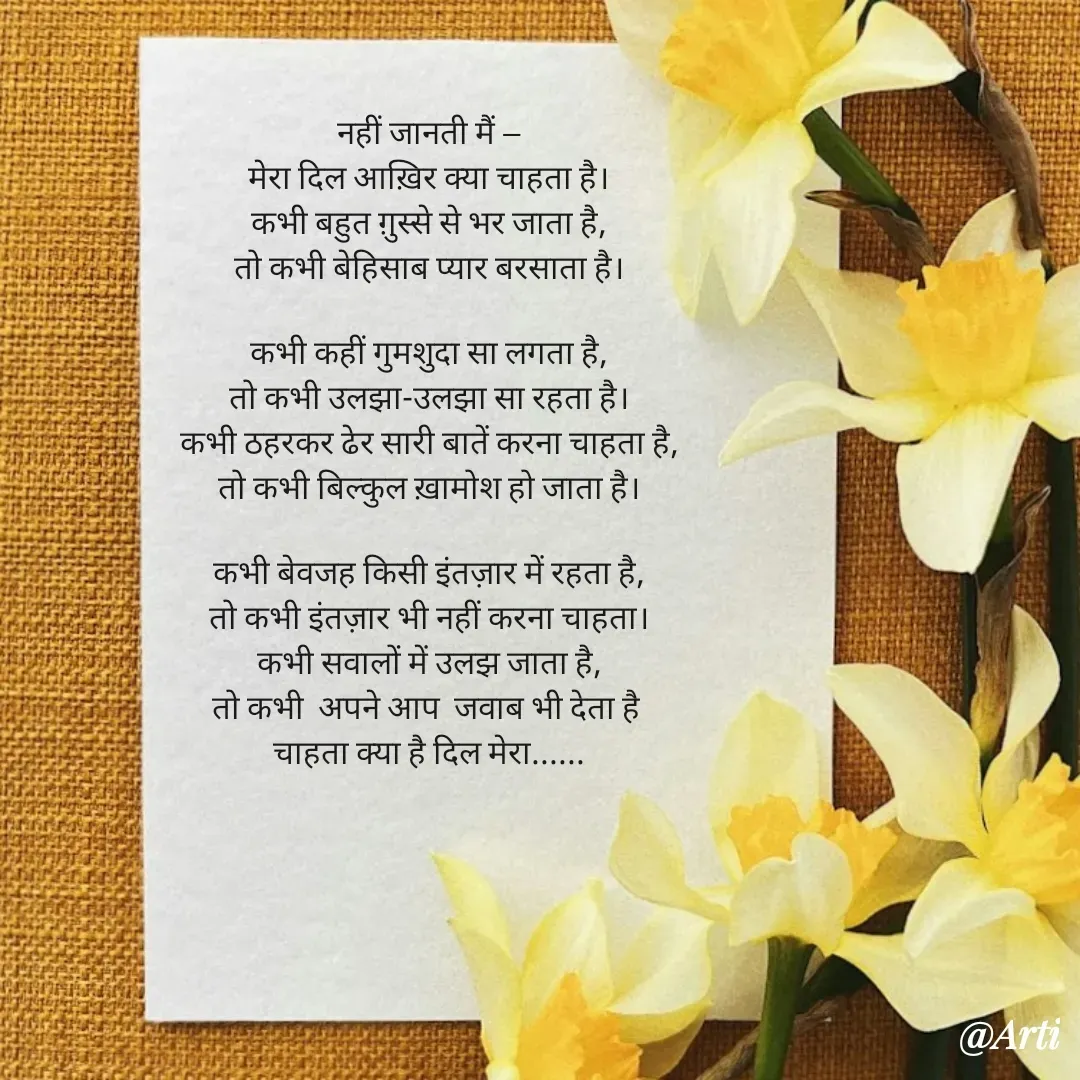 नहीं जानती मैं –
मेरा दिल आख़िर क्या चाहता है।
कभी बहुत ग़ुस्से से भर जाता है,
तो कभी बेहिसाब प्यार बरसाता है।
कभी कहीं गुमशुदा सा लगता है,
तो कभी उलझा-उलझा सा रहता है।
कभी ठहरकर ढेर सारी बातें करना चाहता है,
तो कभी बिल्कुल ख़ामोश हो जाता है।
कभी बेवजह किसी इंतज़ार में रहता है,
तो कभी इंतज़ार भी नहीं करना चाहता।
कभी सवालों में उलझ जाता है,
तो कभी  अपने आप  जवाब भी देता है
चाहता क्या है दिल मेरा......
@Arti